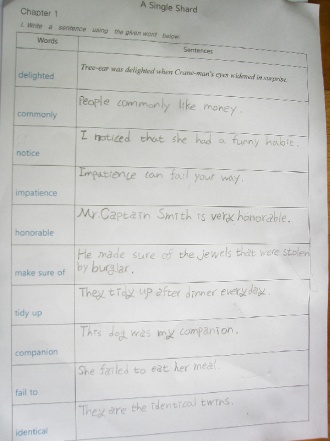 A Single Shard
Chapter 1
1. Write a sentence using the given word below.
Words Sentences
delighted Tree-ear was delighted when Crane-man's eyes widened in surprise.
commonly People commonly like money.
notice I noticed that she had a funny habit.
impatience Impatience can fail your way.
honorable Mr. Captain Smith is very honorable.
make sure of He made sure of the jewels that were stolen
by burglar.
tidy up They tidy up after dinner everyday.
companion This dog was my companion.
fail to She failed to eat her meal.
identical They are the identical twins.